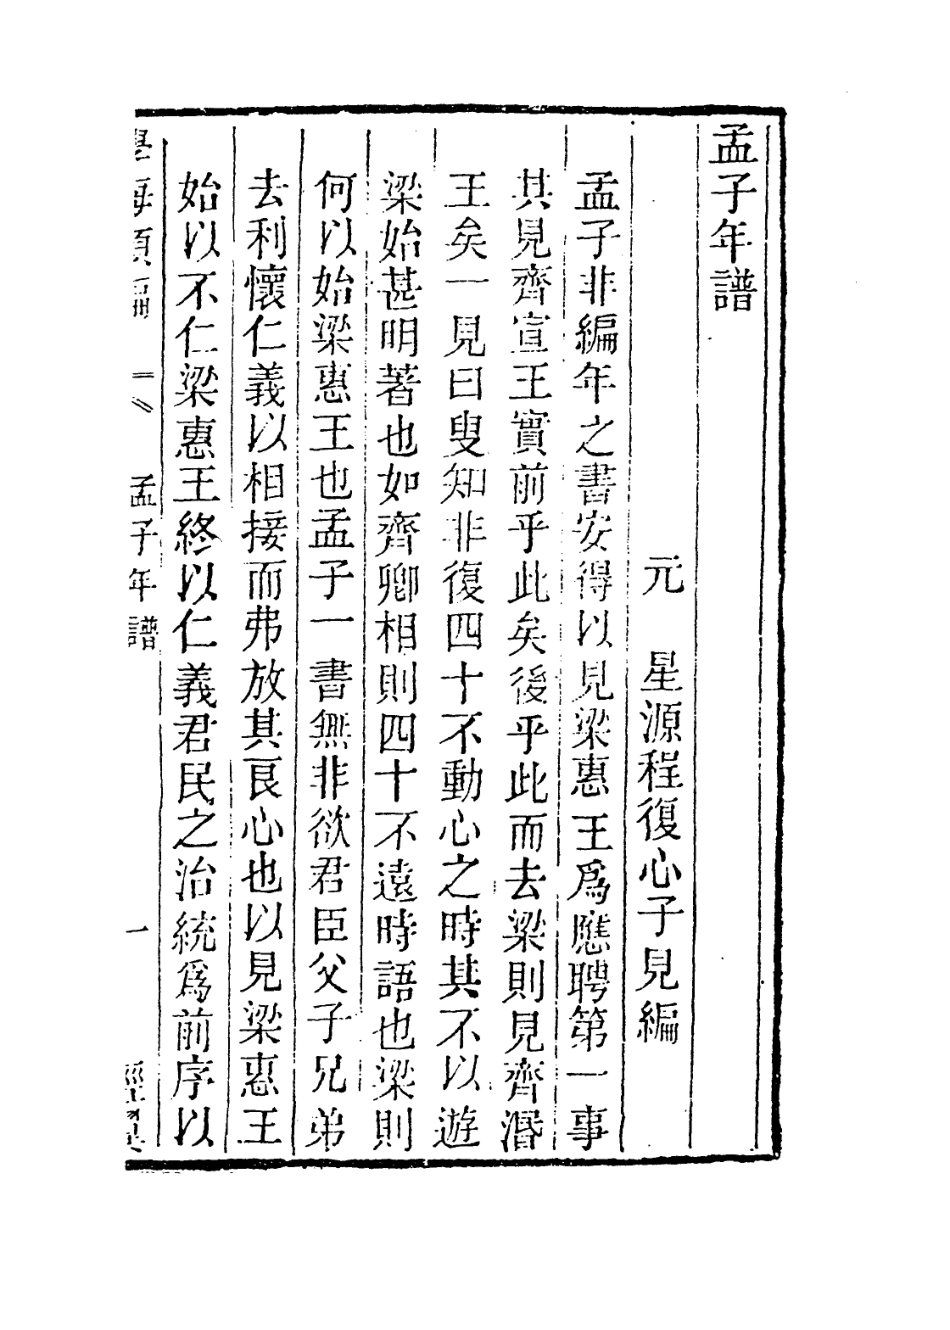 孟子年譜
元 星源程復心子見編
孟子非編年之書安得以見梁惠王爲應聘第一事
其見齊宣王實前乎此矣後乎此而去梁則見齊湣
王矣一見曰叟知非復四十不動心之時其不以遊
梁始甚明著也如齊卿相則四十不遠時語也梁則
何以始梁惠王也孟子一書無非欲君臣父子兄弟
去利懷仁義以相接而弗放其良心也以見梁惠王
始以不仁梁惠王終以仁義君民之治統爲前序以
學海類編 孟子年譜 一